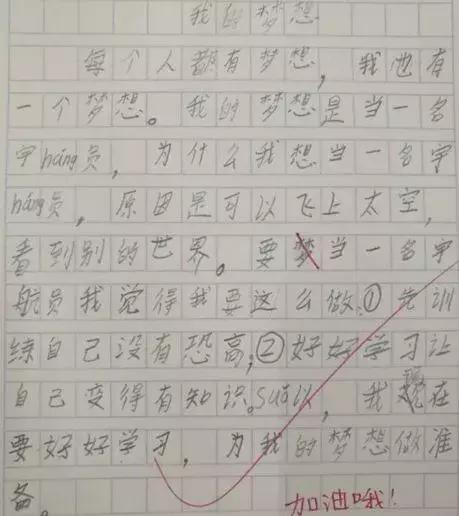 我的梦想
每个人都有梦想，我也有
一个梦想。我的梦想是当一名
宇háng员，为什么我想当一名宇
háng员，原因是可以飞上太空，
看到别的世界。要梦当一名宇
航员我觉得我要这么做:①先训
练自己没有恐高,②好好学习让
自己变得有知识。suǒ以，我现在
要好好学习，为我的梦想做准
备。
加油哦!